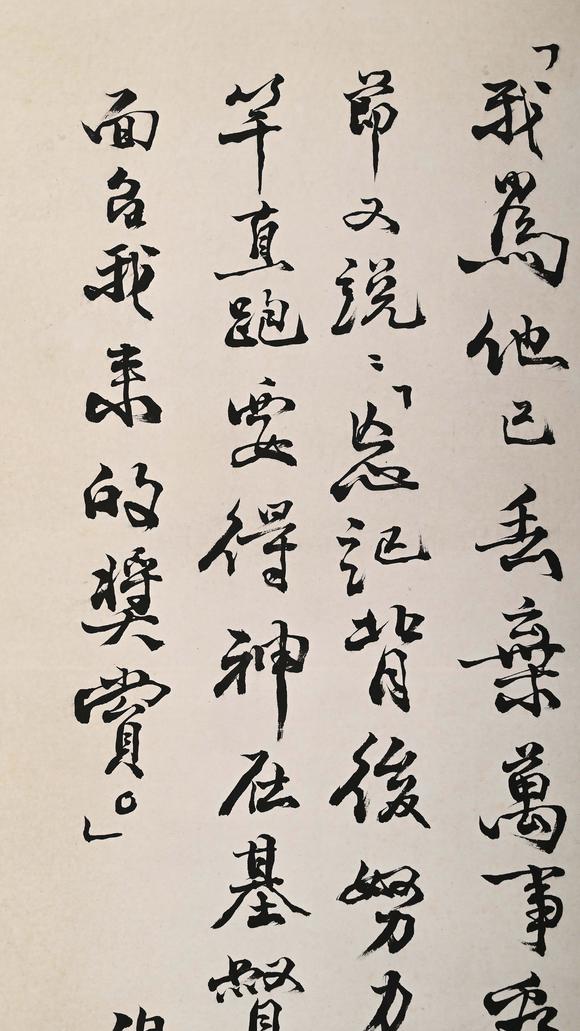 「我為他已丟棄萬事
節又說：「忘記背後努力
竿直跑要得神在基督
面召我来的獎賞。」